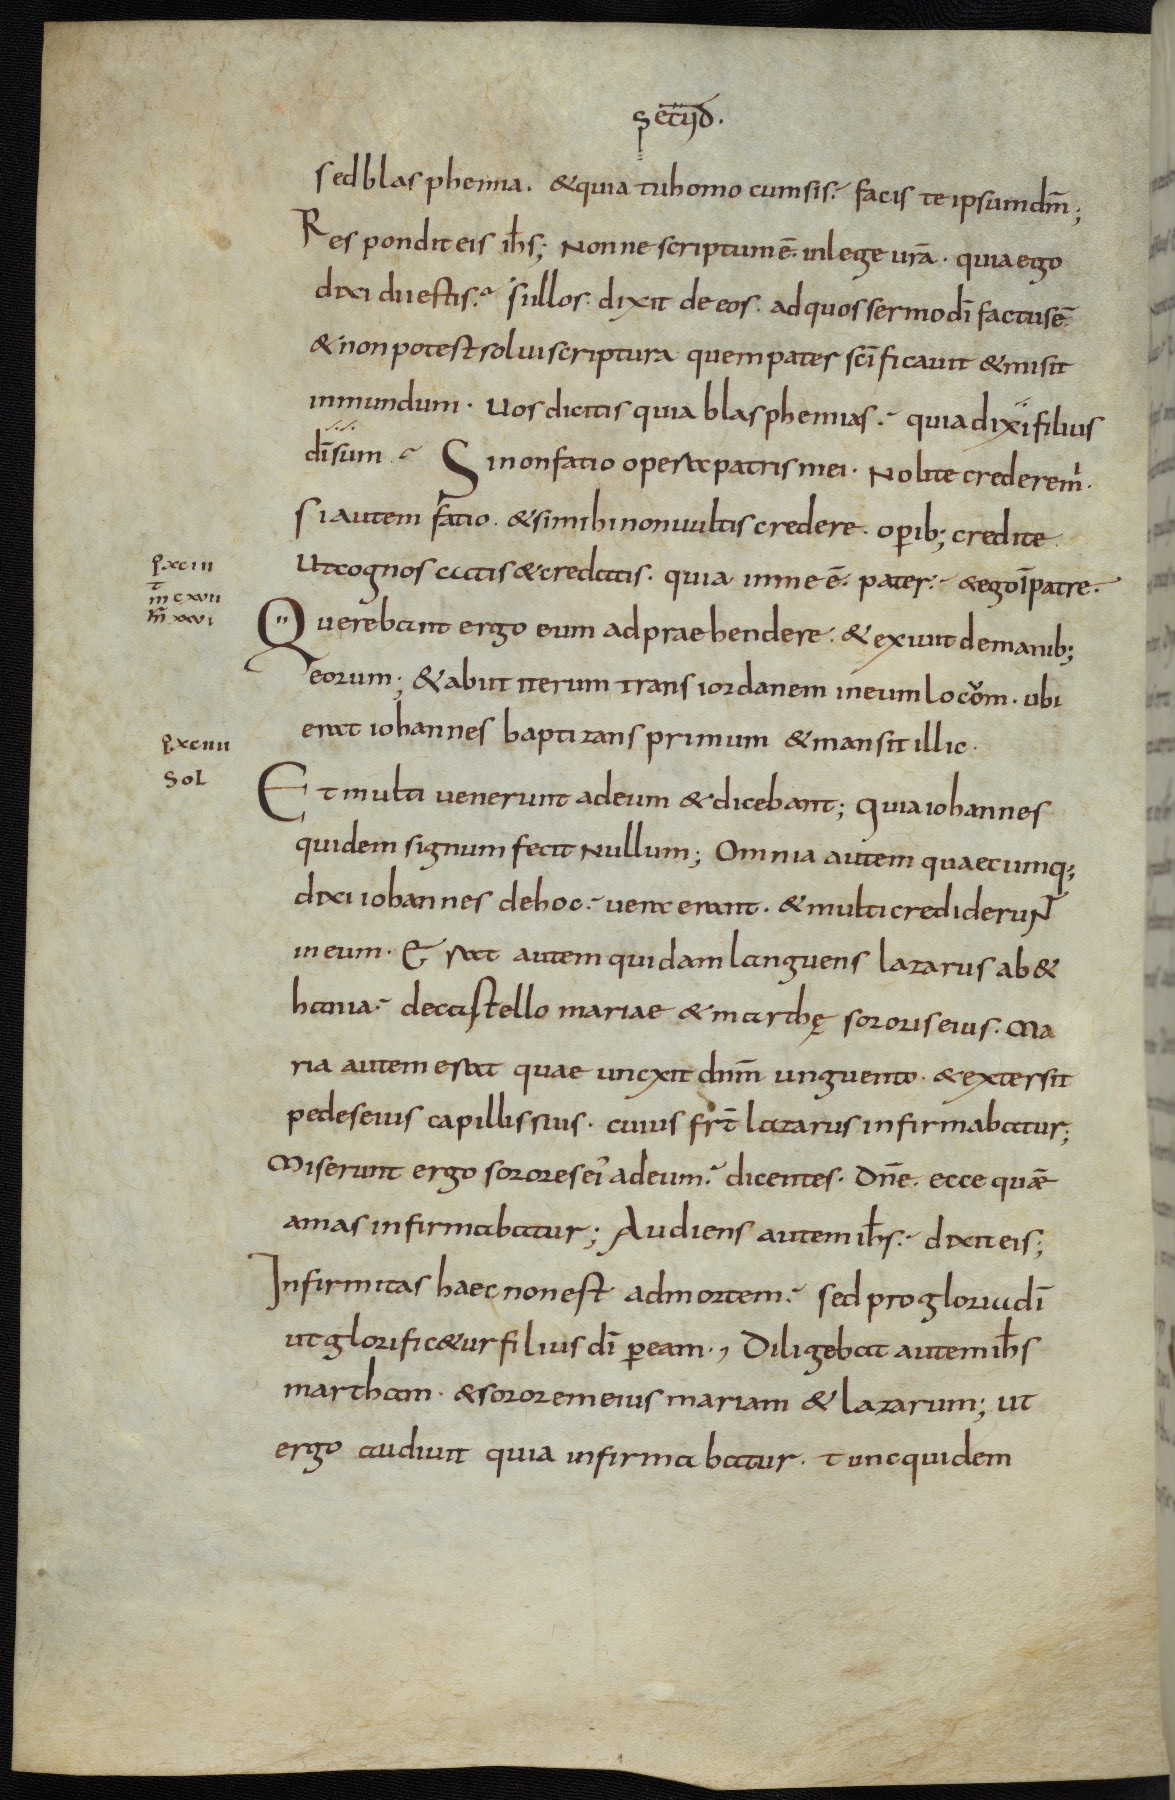 secūd.
sed blasphemia. & quia tu homo cum sis. facis te ipsum dm̄;
Respondit eis ihs̄; Nonne scriptum ē. in lege ur̄a. quia ego
dixi dii estis. si illos. dixit deos. ad quos sermo dī factus ē.
& non potest solui scriptura quem pater sc̄ificauit & misit
in mundum. Uos dicitis quia blasphemas. quia dixi filius
dī sum. Si non fatio opera patris mei. Nolite credere m̄.
si autem fatio. & si mihi non uultis credere. operib; credite
Ut cognoscatis & credatis. quia in me ē. pater. & ego ī patre.
p. xciii
m̄ cxvii
m̄r xxvi
Querebant ergo eum adpraehendere. & exiuit de manib;
eorum; & abiit iterum trans iordanem in eum locom. ubi
erat iohannes baptizans primum & mansit illic.
p. xciiii
Sol
Et multi uenerunt ad eum & dicebant; Quia iohannes
quidem signum fecit Nullum; Omnia autem quaecumq;
dixi iohannes de hoc. uera erant. & multi crediderunt
in eum. Erat autem quidam languens lazarus a b&
hania. de castello mariae & marthę sororis eius. Ma
ria autem erat quae uncxit dnm̄ unguento. & extersit
pedes eius capillis suis. cuius frt̄ lazarus infirmabatur;
Miserunt ergo sorores ei ad eum. dicentes. Dnē. ecce quē
amas infirmabatur; Audiens autem ihs̄. dixit eis;
Infirmitas haec non est ad mortem. sed pro gloria dī
ut glorific&ur filius dī p̄ eam., Diligebat autem ihs̄
martham. & sororem eius mariam & lazarum; ut
ergo audiuit quia infirmabatur. tunc quidem